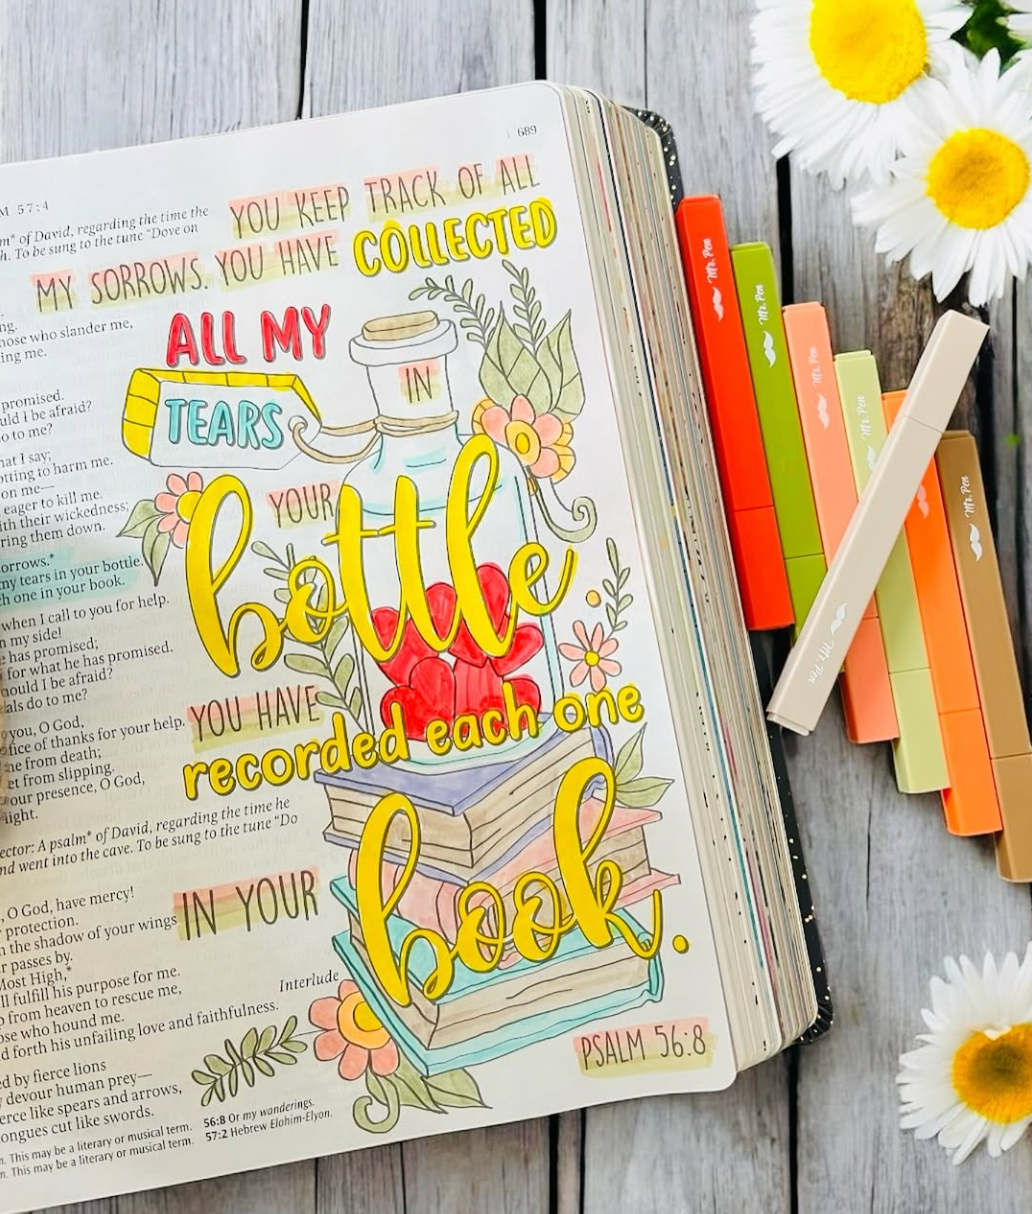 689
M 57:4
m* of David, regarding the time the
h. To be sung to the tune "Dove on
YOU KEEP TRACK OF ALL
MY SORROWS. YOU HAVE COLLECTED
ALL MY
TEARS
IN
YOUR
bottle
YOU HAVE
recorded each one
IN YOUR
book.
PSALM 56:8
ng.
hose who slander me,
ing me.
promised.
uld I be afraid?
o to me?
hat I say;
otting to harm me.
on me—
eager to kill me.
ith their wickedness;
ring them down.
orrows.*
my tears in your bottle.
h one in your book.
when I call to you for help.
n my side!
has promised;
for what he has promised.
hould I be afraid?
als do to me?
you, O God,
fice of thanks for your help.
me from death;
et from slipping.
our presence, O God,
ight.
ector: A psalm* of David, regarding the time he
nd went into the cave. To be sung to the tune "Do
, O God, have mercy!
protection.
n the shadow of your wings
r passes by.
Most High,*
ll fulfill his purpose for me.
p from heaven to rescue me,
ose who hound me.
Interlude
d forth his unfailing love and faithfulness.
ed by fierce lions
y devour human prey—
erce like spears and arrows,
ongues cut like swords.
n. This may be a literary or musical term. 56:8 Or my wanderings.
n. This may be a literary or musical term. 57:2 Hebrew Elohim-Elyon.
Mr. Pen
Mr. Pen
Mr. Pen
Mr. Pen
Mr. Pen
Mr. Pen